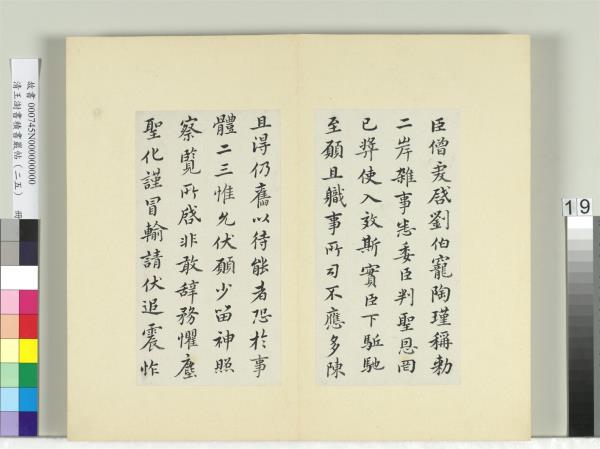 臣僧虔啓劉伯寵陶瑾稱勑
二岸雜事悉委臣判聖恩罔
已獎使入效斯實臣下駈馳
至願且職事所司不應多陳
且得仍舊以待能者恐於事
體二三惟允伏願少留神照
察覽所啓非敢辭務懼塵
聖化謹冒輸請伏追震怍
故書 000745N000000000
清王澍書積書巖帖(二五) 冊
19